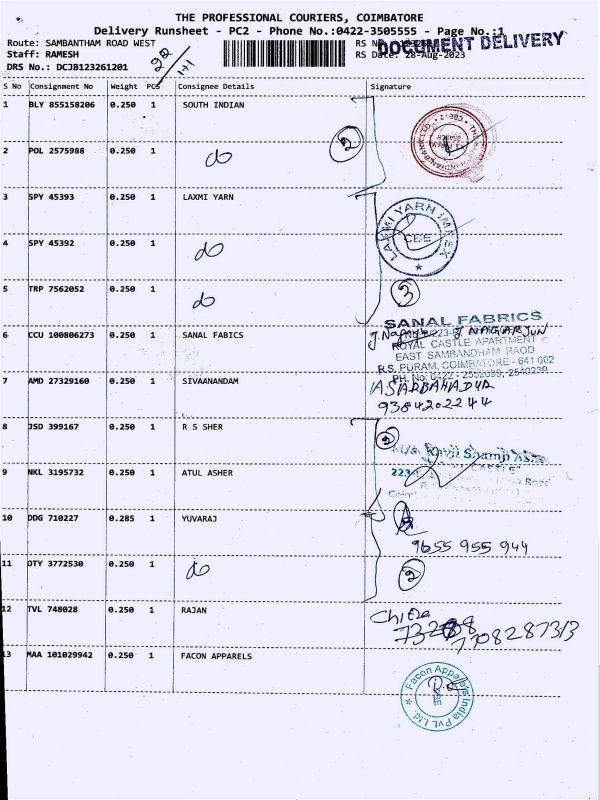 THE PROFESSIONAL COURIERS, COIMBATORE
Delivery Runsheet - PC2 - Phone No.:0422-3505555 - Page No.:1
Route: SAMBANTHAM ROAD WEST
DOCUMENT DELIVERY
Staff: RAMESH
RS Date: 28-Aug-2023
DRS No.: DCJB123261201
1+1
S No Consignment No Weight PCS Consignee Details Signature
1 BLY 855158206 0.250 1 SOUTH INDIAN
2 POL 2575988 0.250 1 do 2
3 SPY 45393 0.250 1 LAXMI YARN
LAXMI YARN IMPEX
CBE
4 SPY 45392 0.250 1 do
5 TRP 7562052 0.250 1 do 3
SANAL FABRICS
6 CCU 100806273 0.250 1 SANAL FABICS
J. NAGARJUN
ROYAL CASTLE APARTMENT
EAST SAMBANDHAM RAOD
R.S. PURAM, COIMBATORE - 641 002
PH. No: 0422 - 2552099, 2540239
7 AMD 27329160 0.250 1 SIVAANANDAM
9384202244
8 JSD 399167 0.250 1 R S SHER 2
M/s. Ravji Shamji
223
9 NKL 3195732 0.250 1 ATUL ASHER
10 DDG 710227 0.285 1 YUVARAJ
9655 955 944
11 OTY 3772530 0.250 1 do 2
12 TVL 748028 0.250 1 RAJAN
7708287313
13 MAA 101029942 0.250 1 FACON APPARELS
Facon Apparels India Pvt. Ltd.